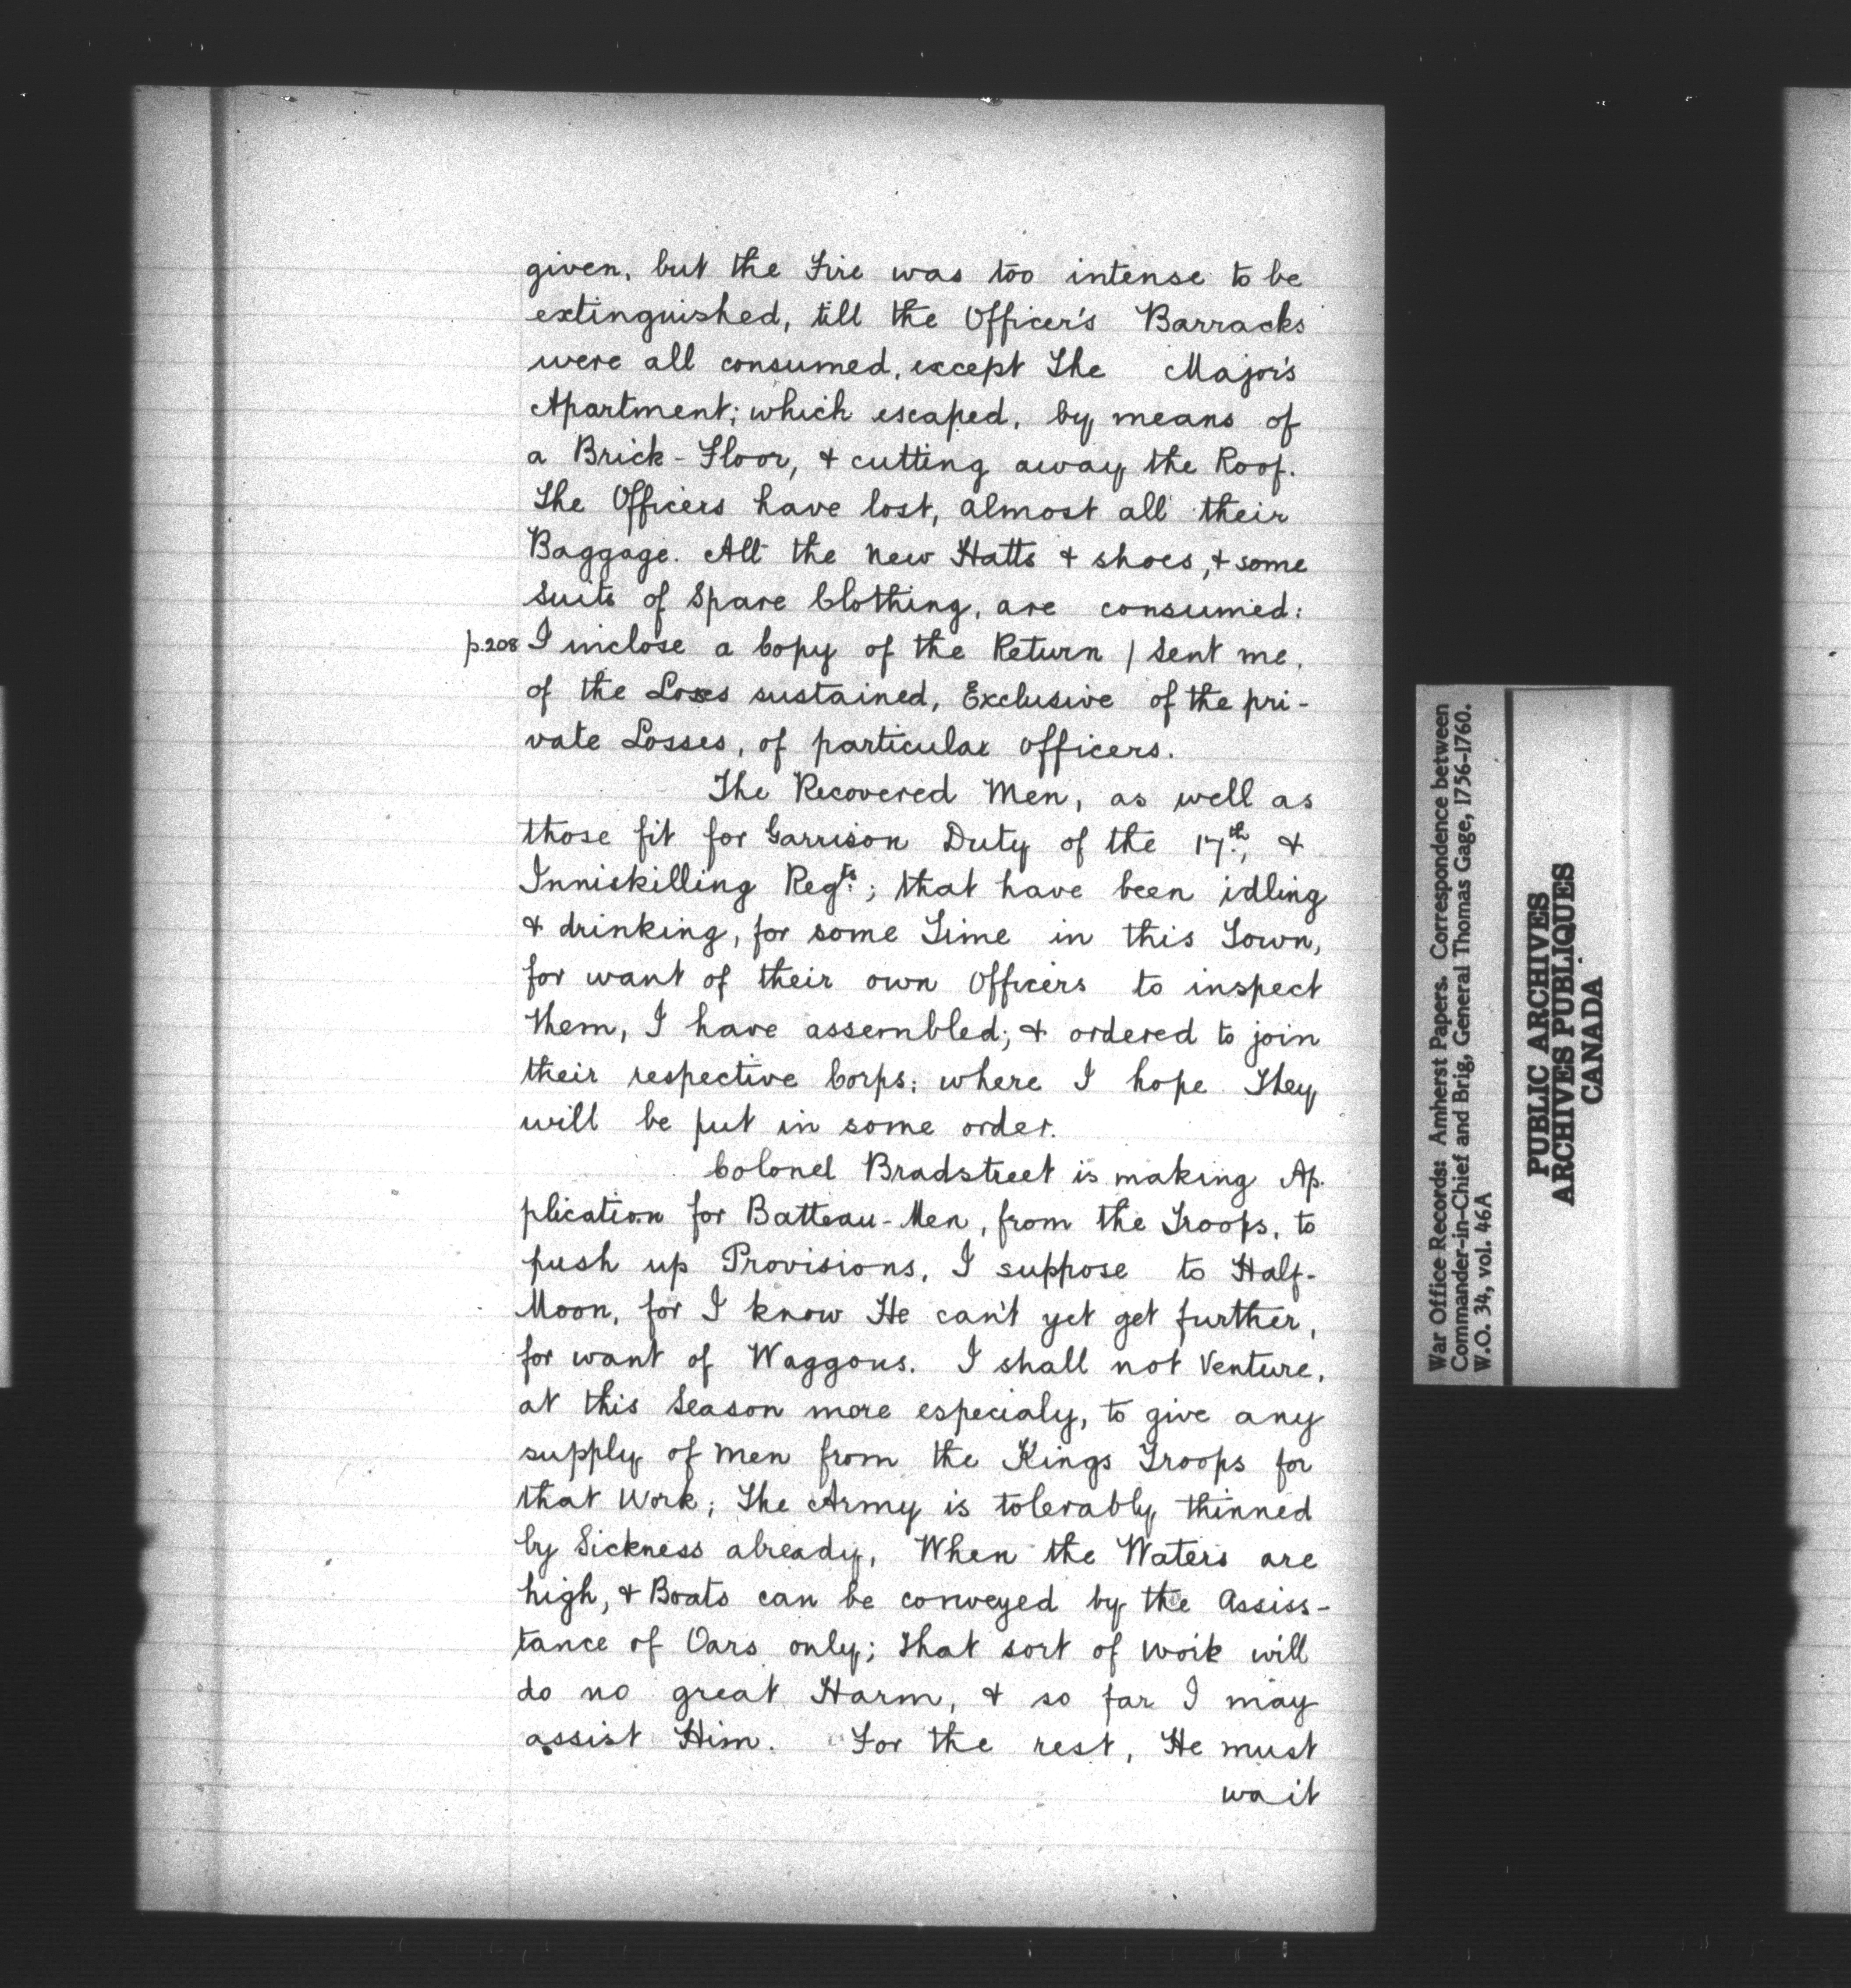 given, but the Fire was too intense to be
extinguished, till the Officer's Barracks
were all consumed, except The Major's
Apartment; which escaped, by means of
a Brick-Floor, & cutting away the Roof.
The Officers have lost, almost all their
Baggage. All the new Hatts & shoes, & some
Suits of Spare Clothing, are consumed:
p.208 I inclose a Copy of the Return / Sent me,
of the Loses sustained, Exclusive of the pri-
vate Losses, of particular Officers.
The Recovered Men, as well as
those fit for Garrison Duty of the 17th, &
Inniskilling Regts; that have been idling
& drinking, for some Time in this Town,
for want of their own Officers to inspect
Them, I have assembled; & ordered to join
their respective Corps; where I hope They
will be put in some order.
Colonel Bradstreet is making Ap-
plication for Batteau-Men, from the Troops, to
push up Provisions, I suppose to Half-
Moon, for I know He can't yet get further,
for want of Waggons. I shall not Venture,
at this Season more especialy, to give any
supply of Men from the Kings Troops for
that Work; The Army is tolerably thinned
by Sickness already, When the Waters are
high, & Boats can be conveyed by the Assiss-
tance of Oars only; that sort of Work will
do no great Harm, & so far I may
assist Him. For the rest, He must
wait
War Office Records: Amherst Papers. Correspondence between
Commander-in-Chief and Brig, General Thomas Gage, 1756-1760.
W.O. 34, vol. 46A
PUBLIC ARCHIVES
ARCHIVES PUBLIQUES
CANADA